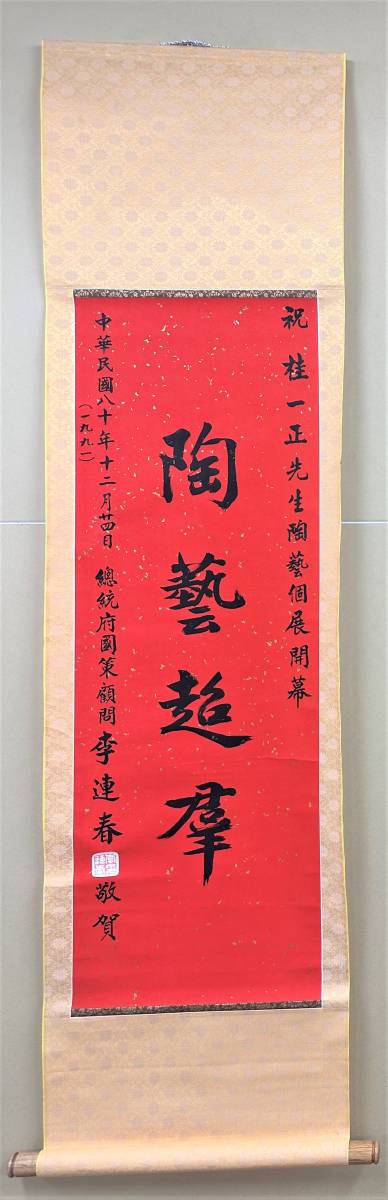 祝 桂一正先生陶藝個展開幕
陶藝超羣
中華民國八十年十二月廿四日 總統府國策顧問 李連春 敬賀
(一九九一)